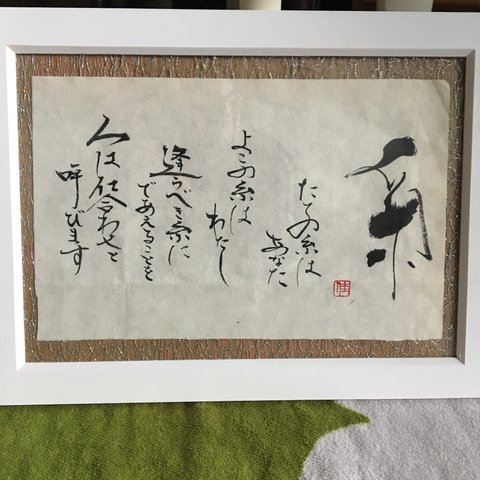 たての糸は
あなた
よこの糸は
わたし
逢うべき糸に
であえることを
人は仕合わせと
呼びます
佳